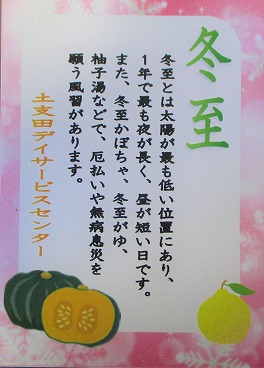 冬至
冬至とは太陽が最も低い位置にあり、
1年で最も夜が長く、昼が短い日です。
また、冬至かぼちゃ、冬至がゆ、
柚子湯などで、厄払いや無病息災を
願う風習があります。
土支田デイサービスセンター